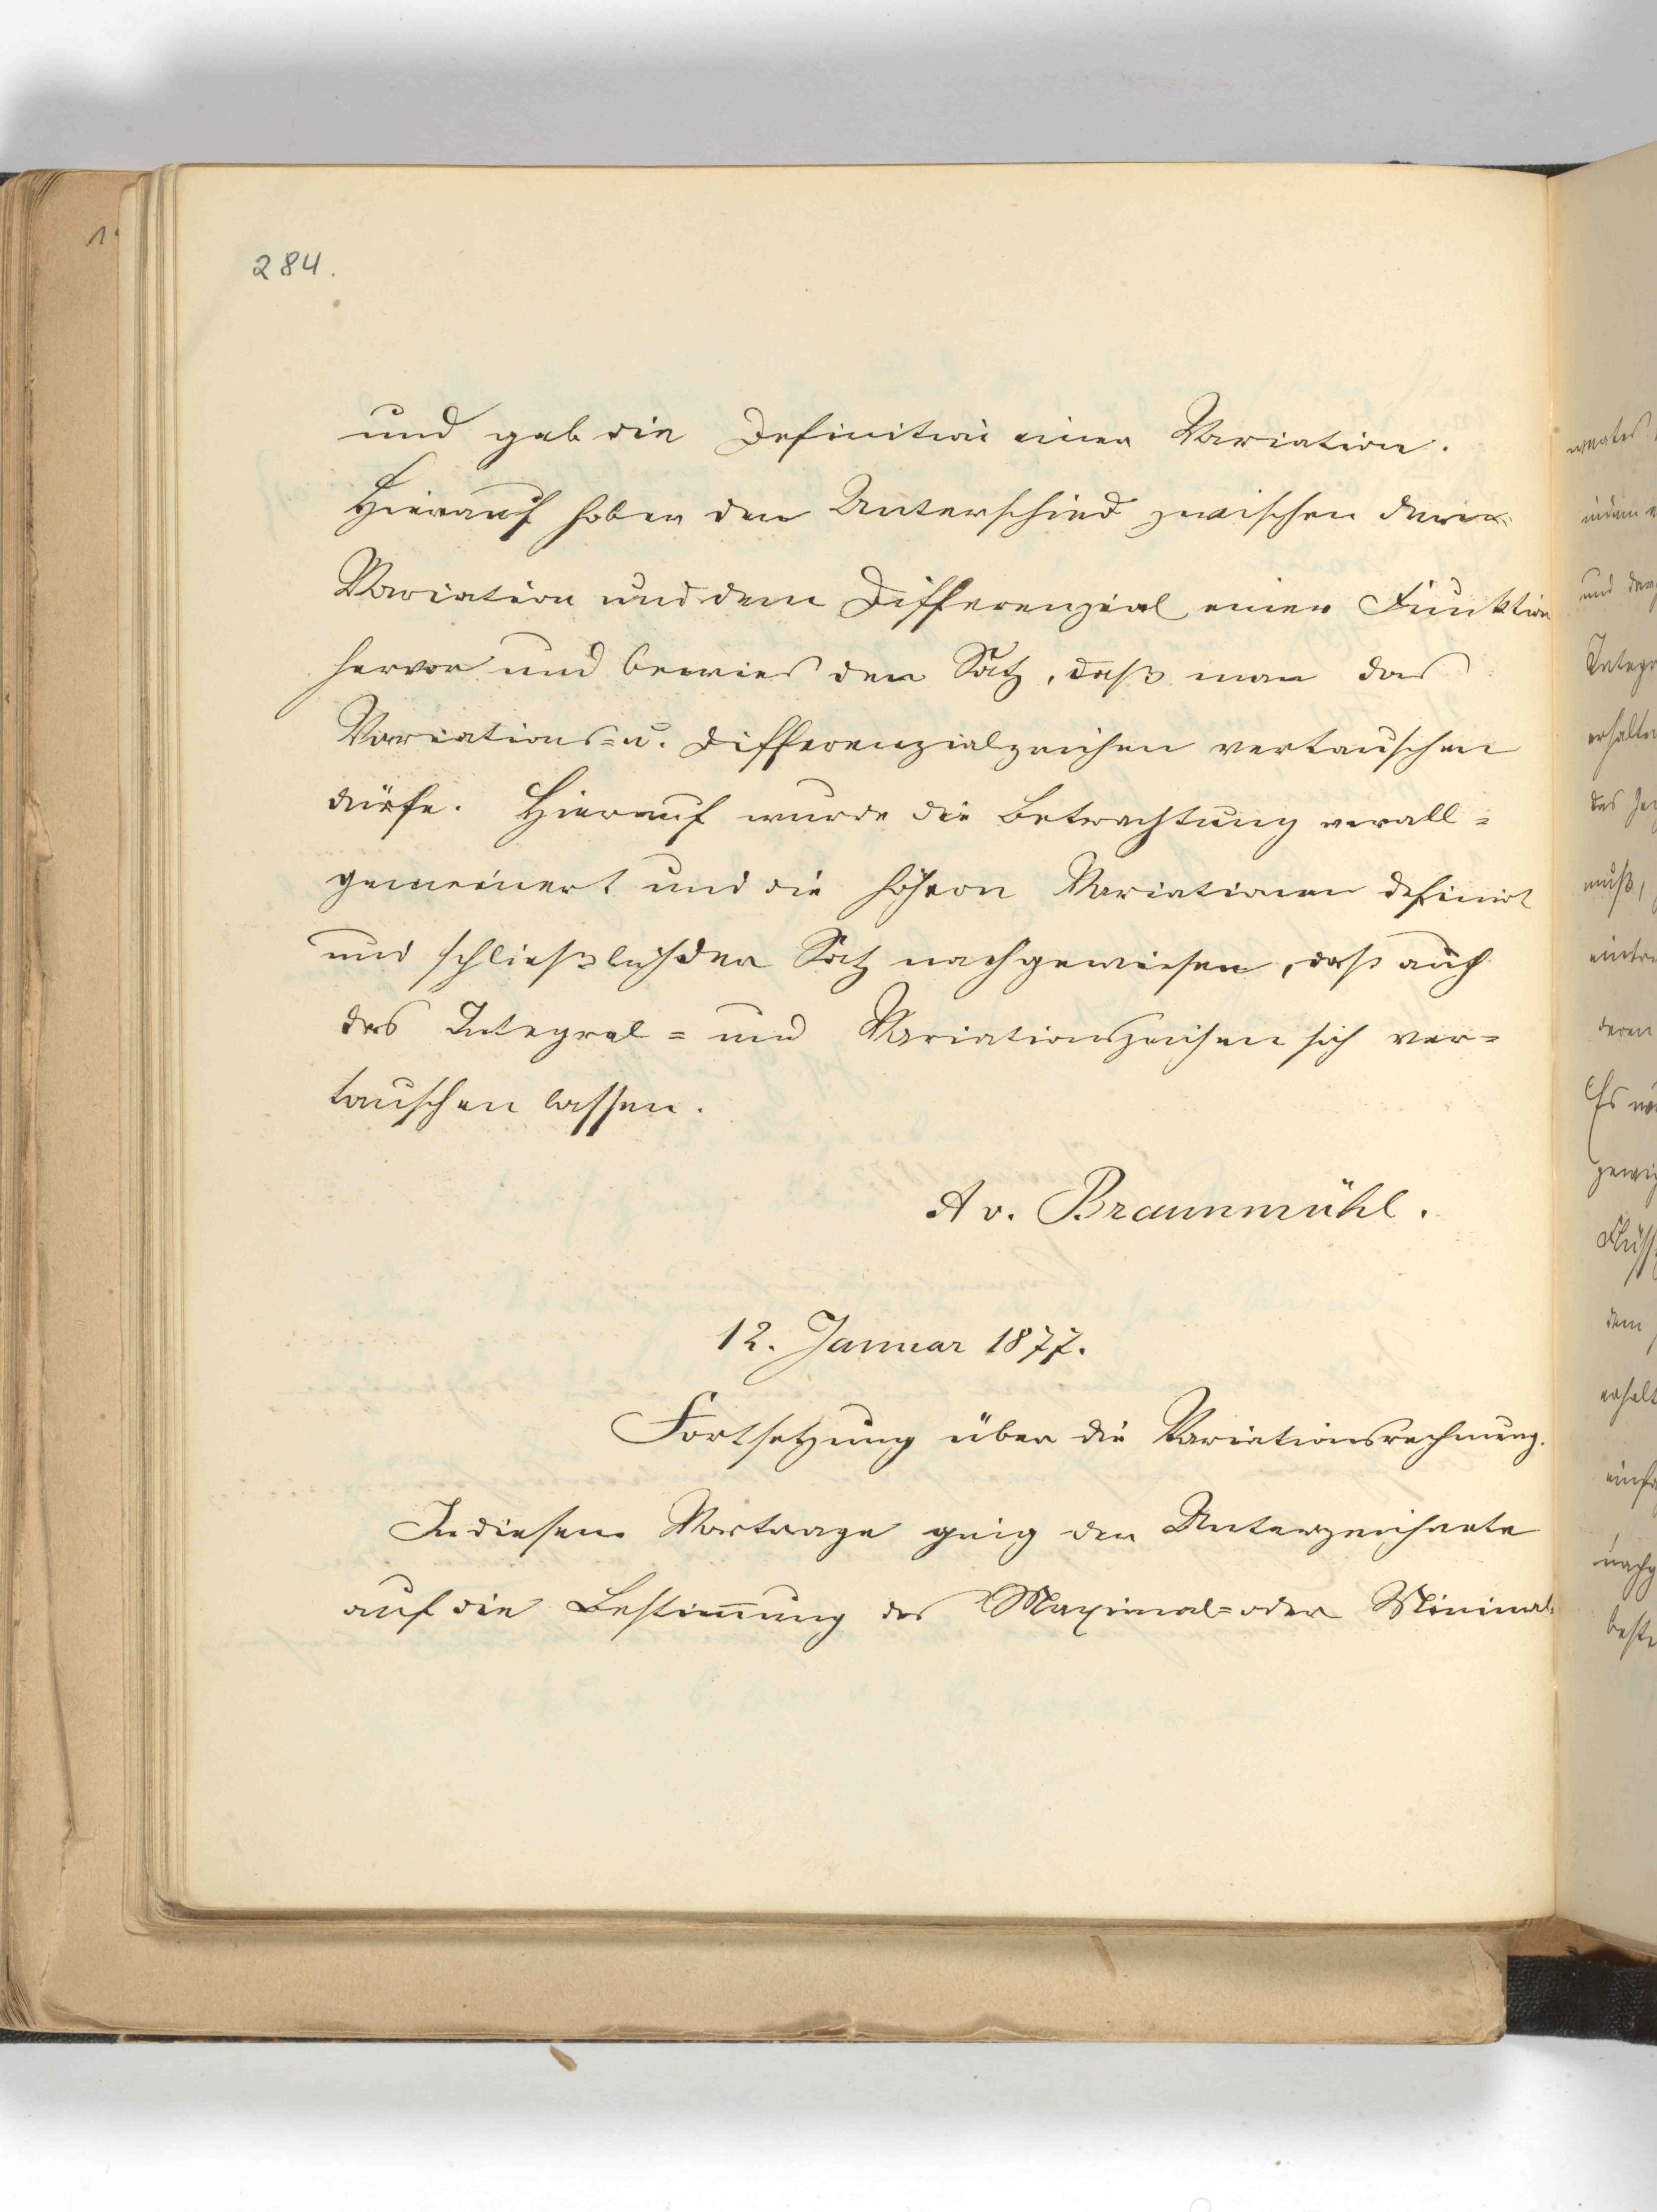 284.
und gab die Definition einer Variation.
Hierauf hob er den Unterschied zwischen der
Variation und dem Differenzial einer Funktion
hervor und bewies den Satz, daß man das
Variations= u. Differenzialzeichen vertauschen
dürfe. Hierauf wurde die Betrachtung verall=
gemeinert und die höheren Variationen definirt
und schließlich der Satz nachgewiesen, daß auch
das Integral= und Variationszeichen sich ver=
tauschen lassen.
A v. Braunmühl.
12. Januar 1877.
Fortsetzung über die Variationsrechnung.
In diesem Vortrage ging der Unterzeichnete
auf die Bestim̅ung des Maximal= oder Minimal=